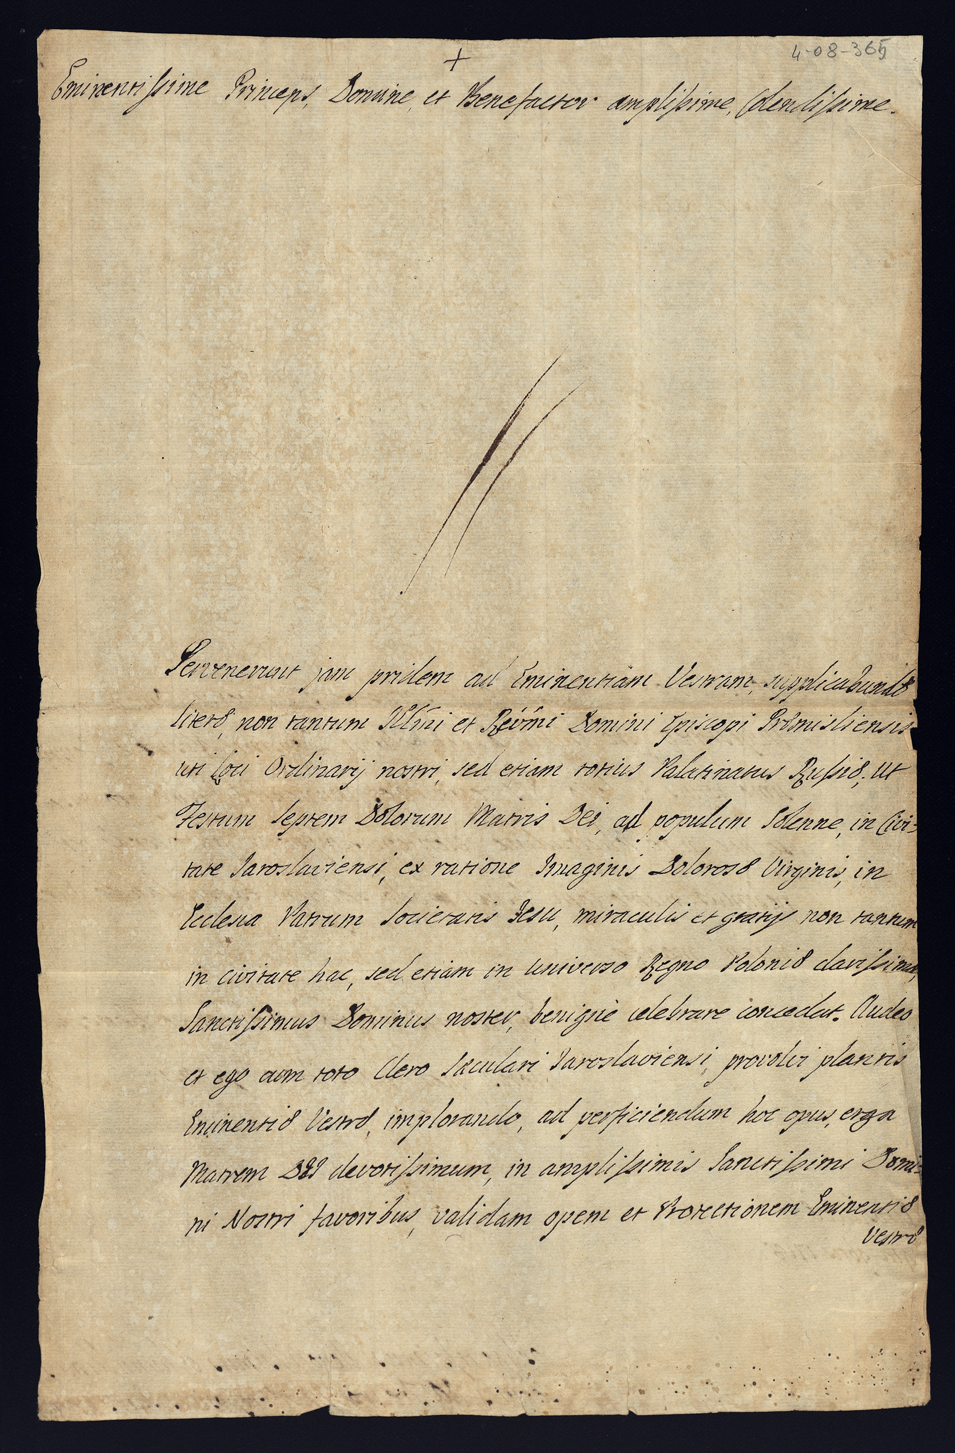 4-08-365
+
Eminentissime Princeps, Domine, et Benefactor amplissime, Colendissime.
Pervenerunt jam pridem ad Eminentiam Vestram, supplicabundæ
literæ, non tantum Illmi et Revmi Domini Episcopi Præmisliensis
uti loci Ordinarij nostri, sed etiam totius Palatinatus Russiæ, Ut
Festum Septem Dolorum Matris Dei, ad populum Solenne, in Civi-
tate Jaroslaviensi, ex ratione Imaginis Dolorosæ Virginis, in
Ecclesia Patrum Societatis Jesu, miraculis et gratijs non tantum
in Civitate hac, sed etiam in universo Regno Poloniæ clarissima,
Sanctissimus Dominus noster, benigne celebrare concedat. Audeo
et ego cum toto Clero Sæculari Jaroslaviensi, provolvi plantis
Eminentiæ Vestræ, implorando, ad perficiendum hoc opus, erga
Matrem DEI devotissimum, in amplissimis Sanctissimi Domi-
ni Nostri favoribus, validam opem et Protectionem Eminentiæ
Vestræ